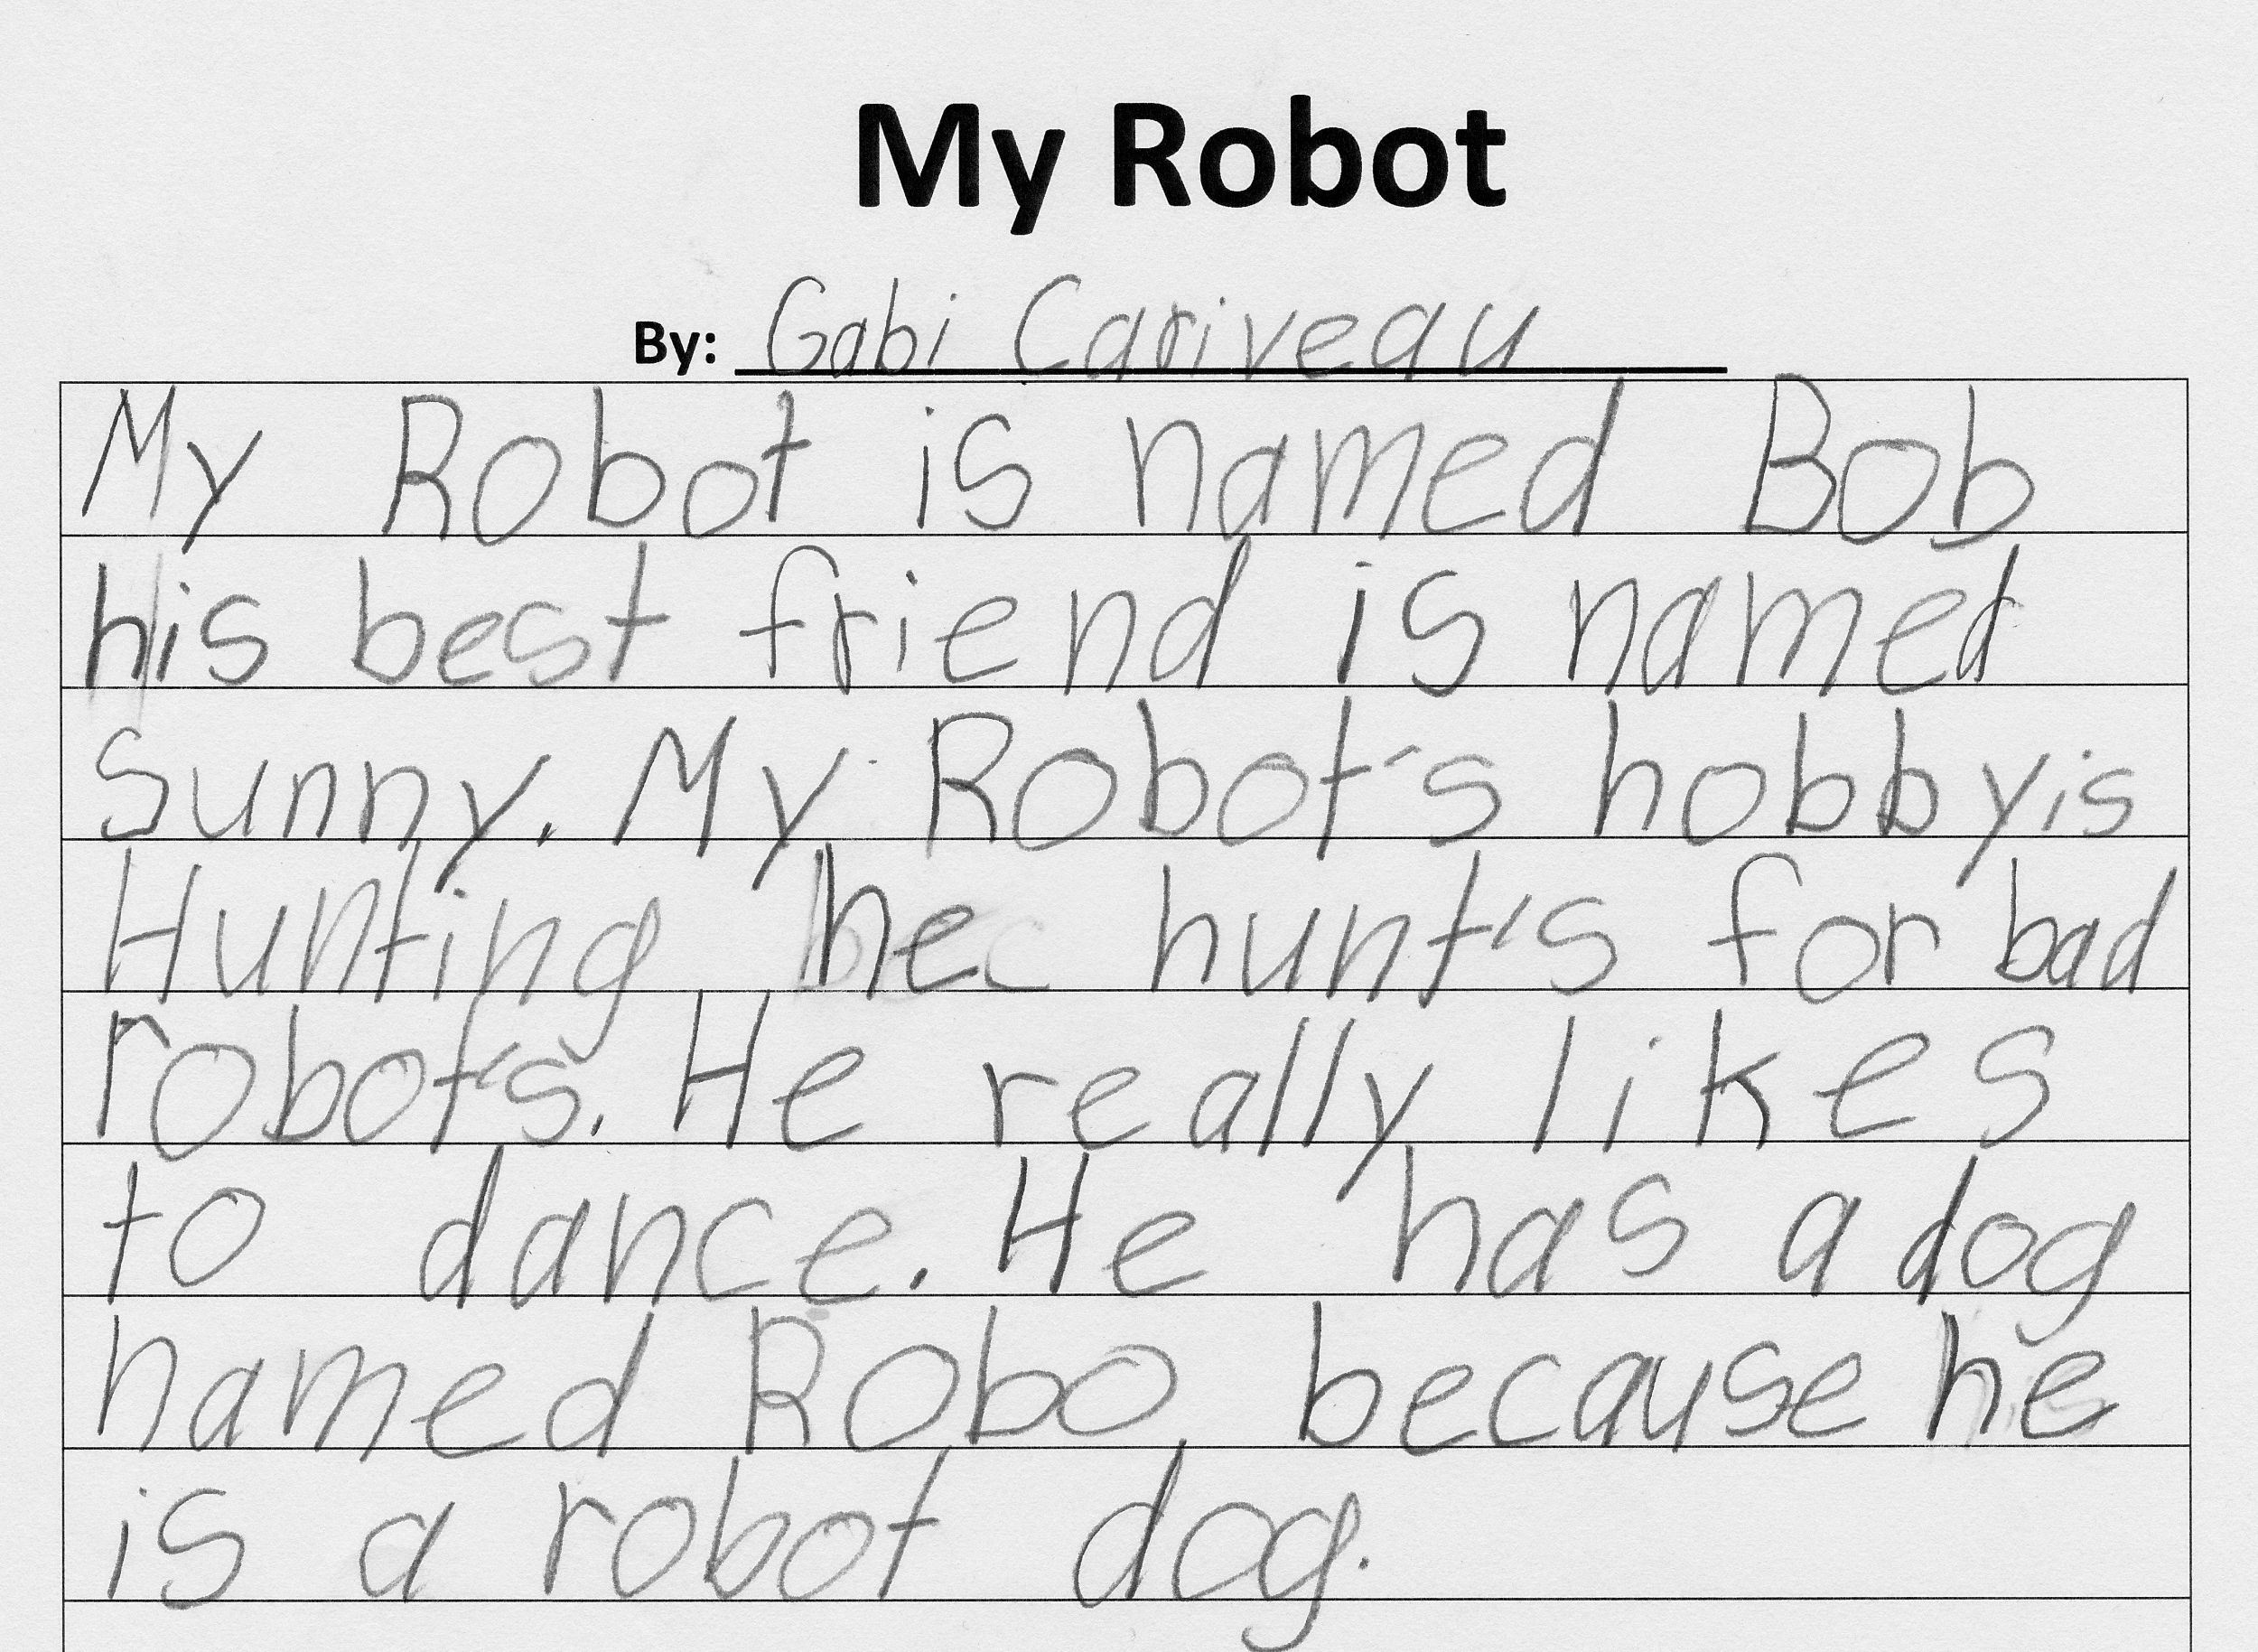 My Robot
By: Gabi Cariveau
My Robot is named Bob
his best friend is named
Sunny. My Robot's hobby is
Hunting he hunt's for bad
robot's. He really likes
to dance. He has a dog
named Robo because he
is a robot dog.